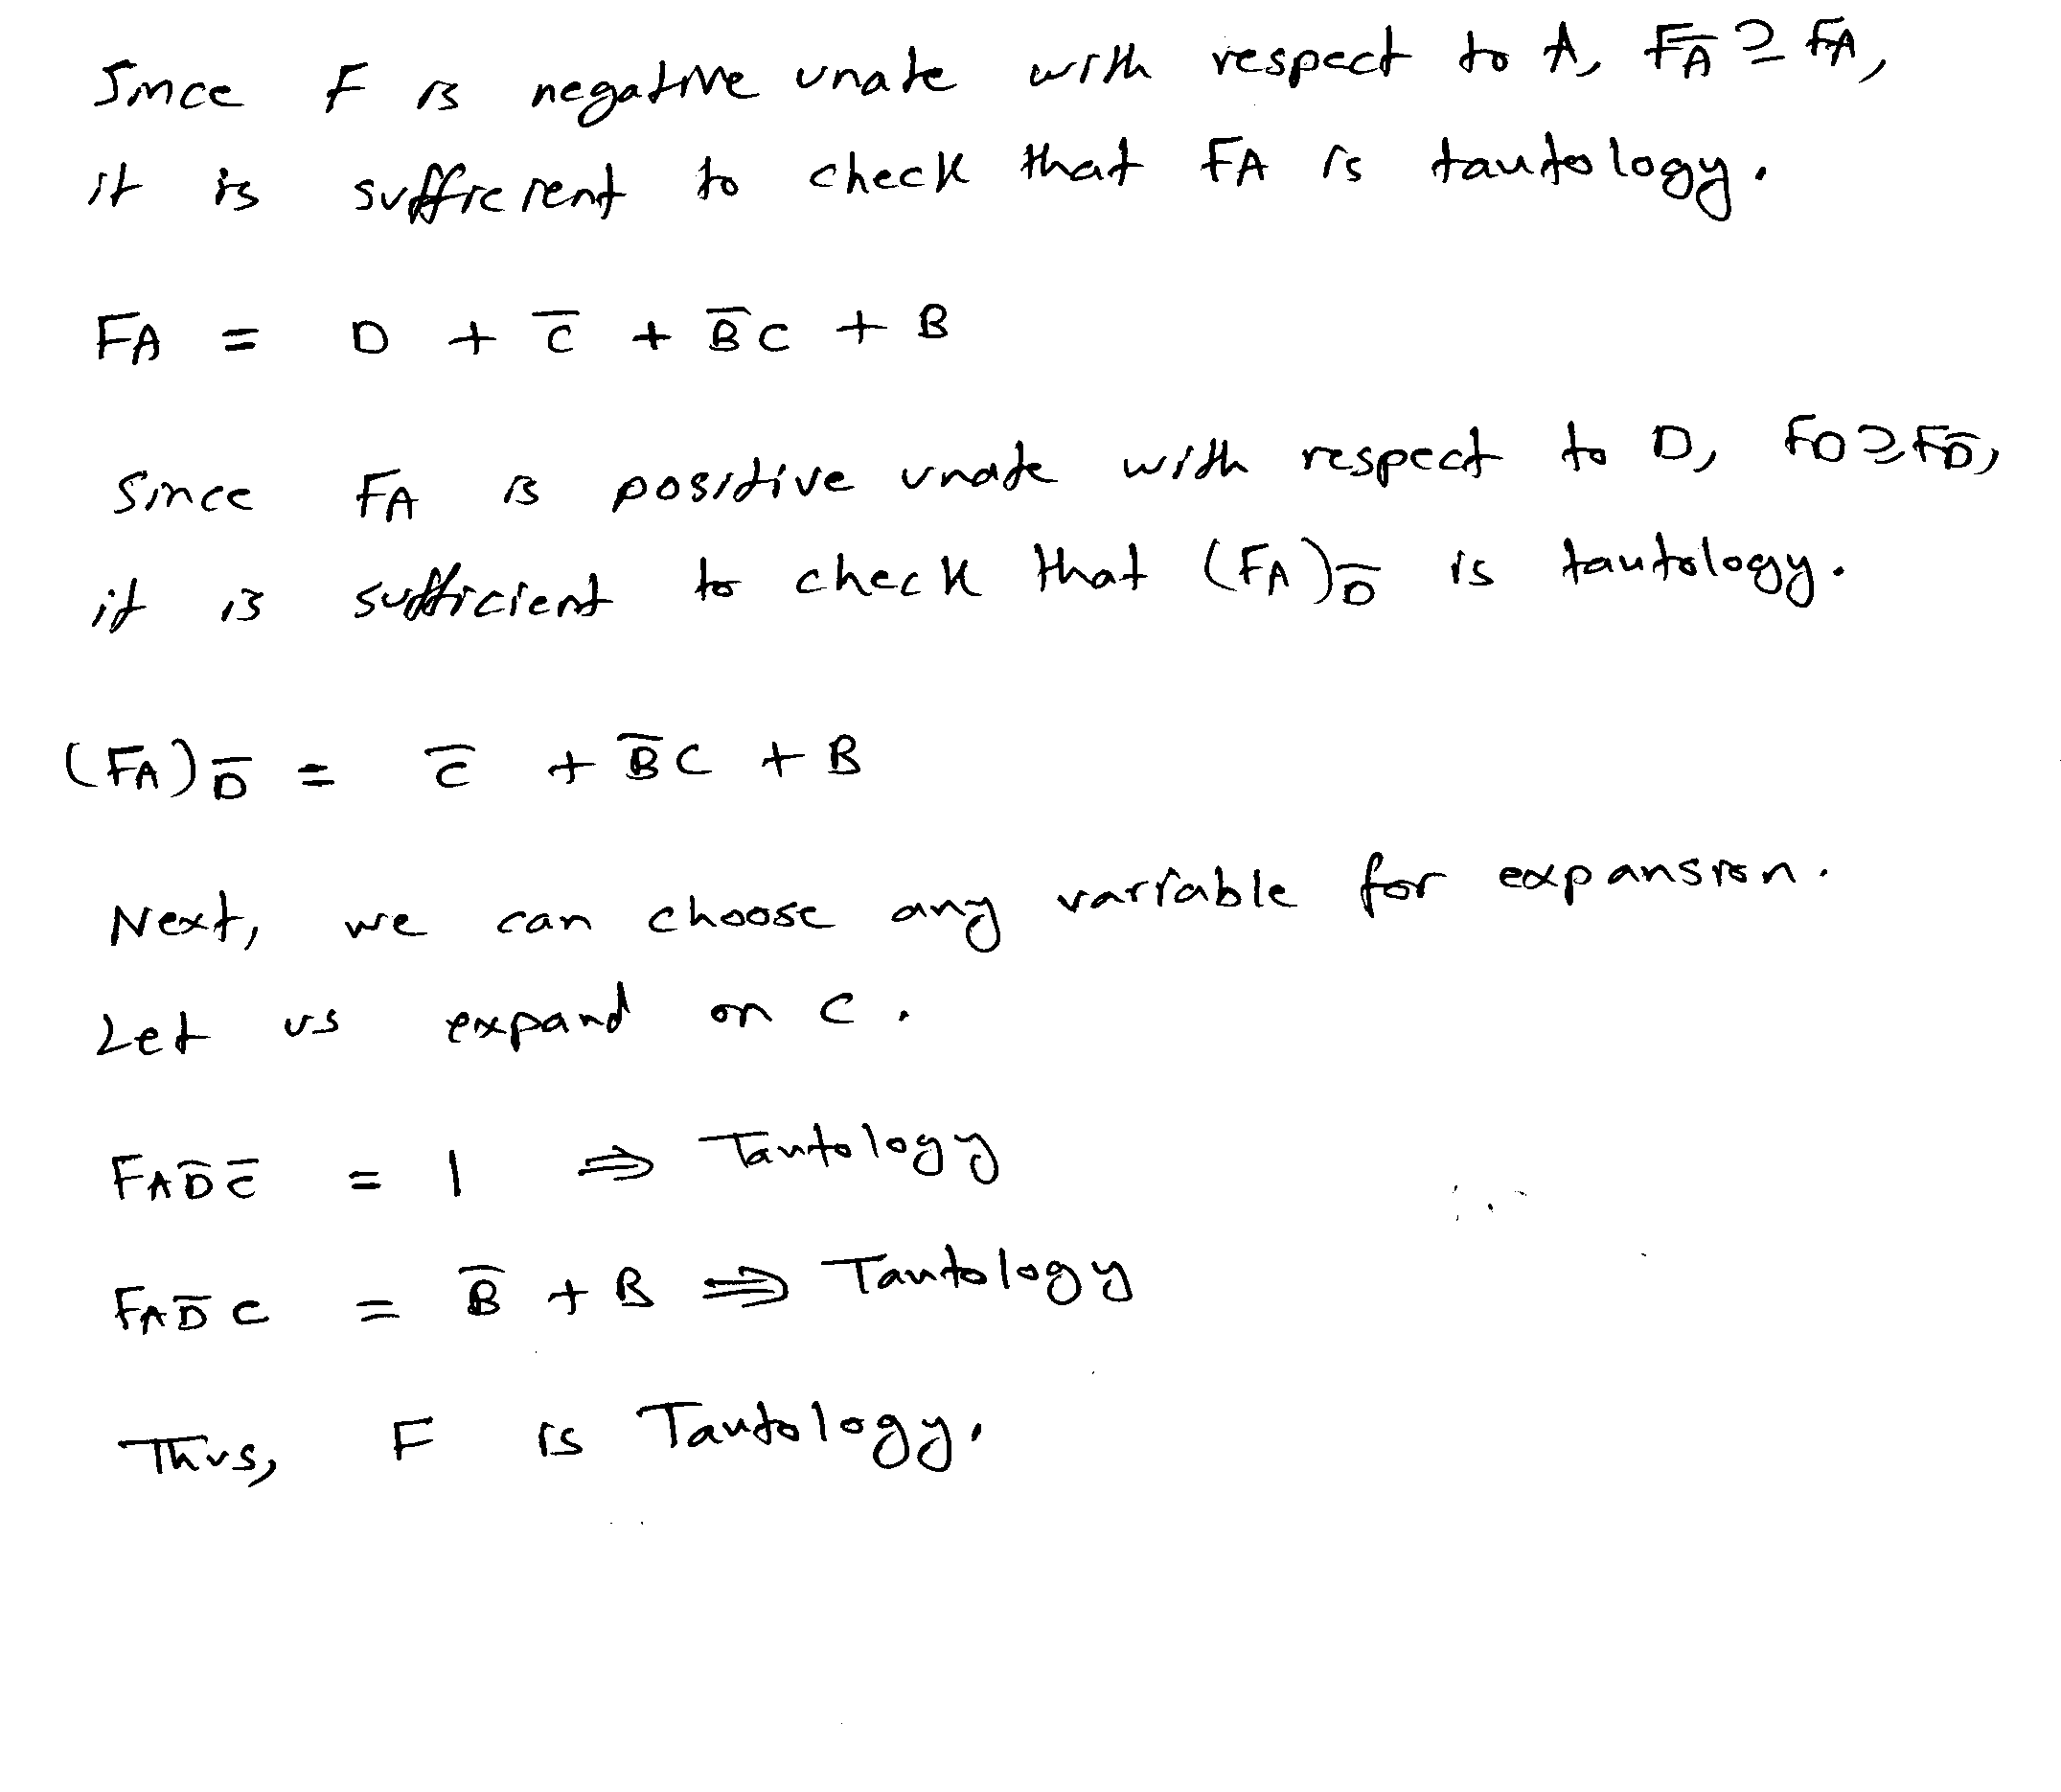 Since F is negative unate with respect to A, F_A̅ ⊇ F_A,
it is sufficient to check that F_A is tautology.
F_A = D + C̅ + B̅C + B
Since F_A is positive unate with respect to D, F_D ⊇ F_D̅,
it is sufficient to check that (F_A)_D̅ is tautology.
(F_A)_D̅ = C̅ + B̅C + B
Next, we can choose any variable for expansion.
Let us expand on C.
F_AD̅C̅ = 1 ⇒ Tautology
F_AD̅C = B̅ + B ⇒ Tautology
Thus, F is Tautology.